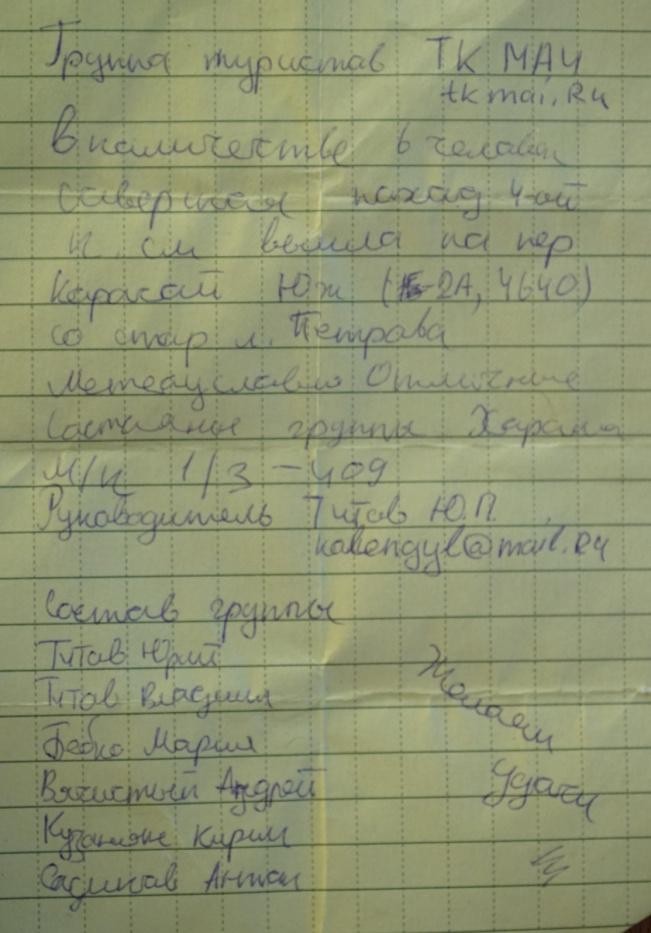 Группа туристов ТК МАИ
tkmai.Ru
в количестве 6 человек
совершая поход 4-ой
к. см вышла на пер
Каракай Юж (2А, 4640)
со стор л. Петрова
Метеоусловия Отличные
Состояние группы Хорошо
М/К 1/3-409
Руководитель Титов Ю.П.
kabengyl@mail.Ru
Состав группы
Титов Юрий
Титов Владимир
Бебко Мария
Вячистый Андрей
Кирилл
Садиков Антон
Желаем
Удачи